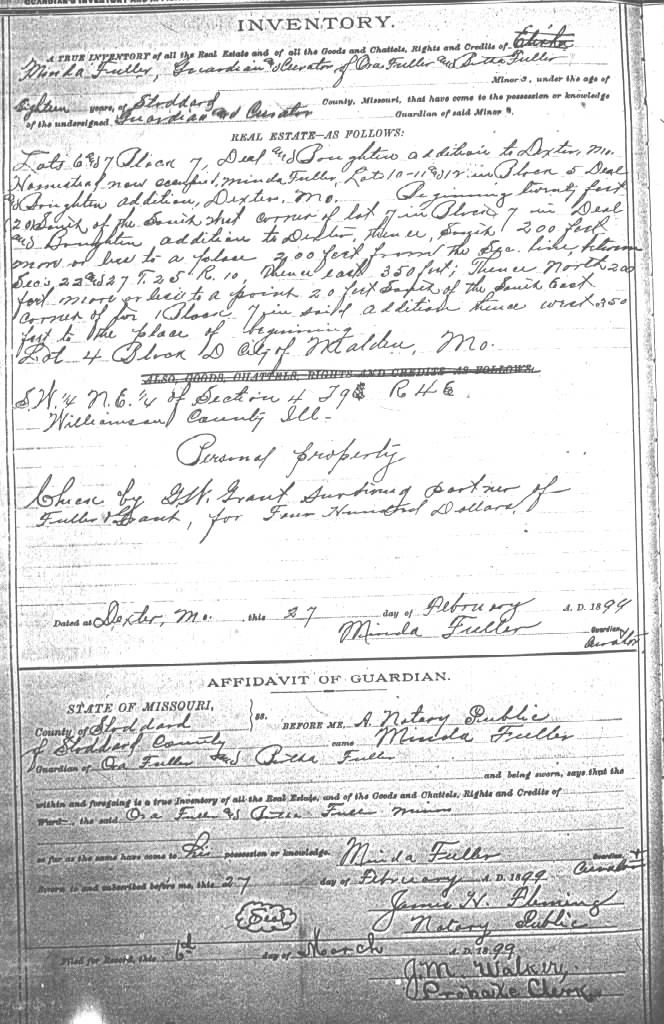 INVENTORY.
A TRUE INVENTORY of all the Real Estate and of all the Goods and Chattels, Rights and Credits of
Minda Fuller, Guardian & Curator of Ora Fuller and Bertha Fuller
Minor s, under the age of
Eighteen years, of Stoddard County, Missouri, that have come to the possession or knowledge
of the undersigned Guardian and Curator Guardian of said Minor s.
REAL ESTATE—AS FOLLOWS:
Lots 6 & 7 Block 7, Deal and Boughten addition to Dexter, Mo.
Homestead now occupied, Minda Fuller, Lots 10-11 & 12 in Block 5 Deal
and Boughten addition, Dexter, Mo. Beginning twenty feet
(20) South of the South West corner of lot 7 in Block 7 in Deal
and Boughten addition to Dexter, thence, South 200 feet
more or less to a place 200 feet from the Sec. line, between
Sec's 22 and 27 T. 25 R. 10 thence east 350 feet; Thence North 200
feet more or less to a point 20 feet South of the South East
corner of lot 1 Block 7 in said addition thence west 350
feet to the place of beginning
Lot 4 Block D City of Malden, Mo.
ALSO, GOODS, CHATTELS, RIGHTS AND CREDITS AS FOLLOWS:
S.W. ¼ N.E. ¼ of Section 4 T 9 S R 4 E
Williamson County Ill-
Personal property
Check by G.W. Grant Surviving partner of
Fuller & Grant, for Four Hundred Dollars.
Dated at Dexter, Mo. this 27 day of February A. D. 1899
Minda Fuller Guardian
Curator
AFFIDAVIT OF GUARDIAN.
STATE OF MISSOURI,
County of Stoddard ss. BEFORE ME, A Notary Public
of Stoddard County came Minda Fuller
Guardian of Ora Fuller and Bertha Fuller
and being sworn, says that the
within and foregoing is a true Inventory of all the Real Estate, and of the Goods and Chattels, Rights and Credits of
Ward , the said Ora Fuller and Bertha Fuller minors
so far as the same have come to his possession or knowledge. Minda Fuller Guardian +
Curator
Sworn to and subscribed before me, this 27 day of February A. D. 1899
James H. Fleming
Seal
Notary Public
Filed for Record, this 6th day of March A. D. 1899
J. M. Walker,
Probate Clerk